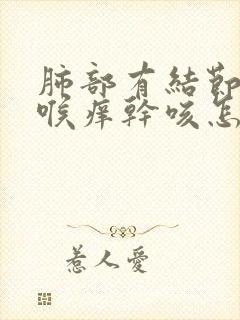 肺部有結節
喉痒幹咳怎
惹人愛